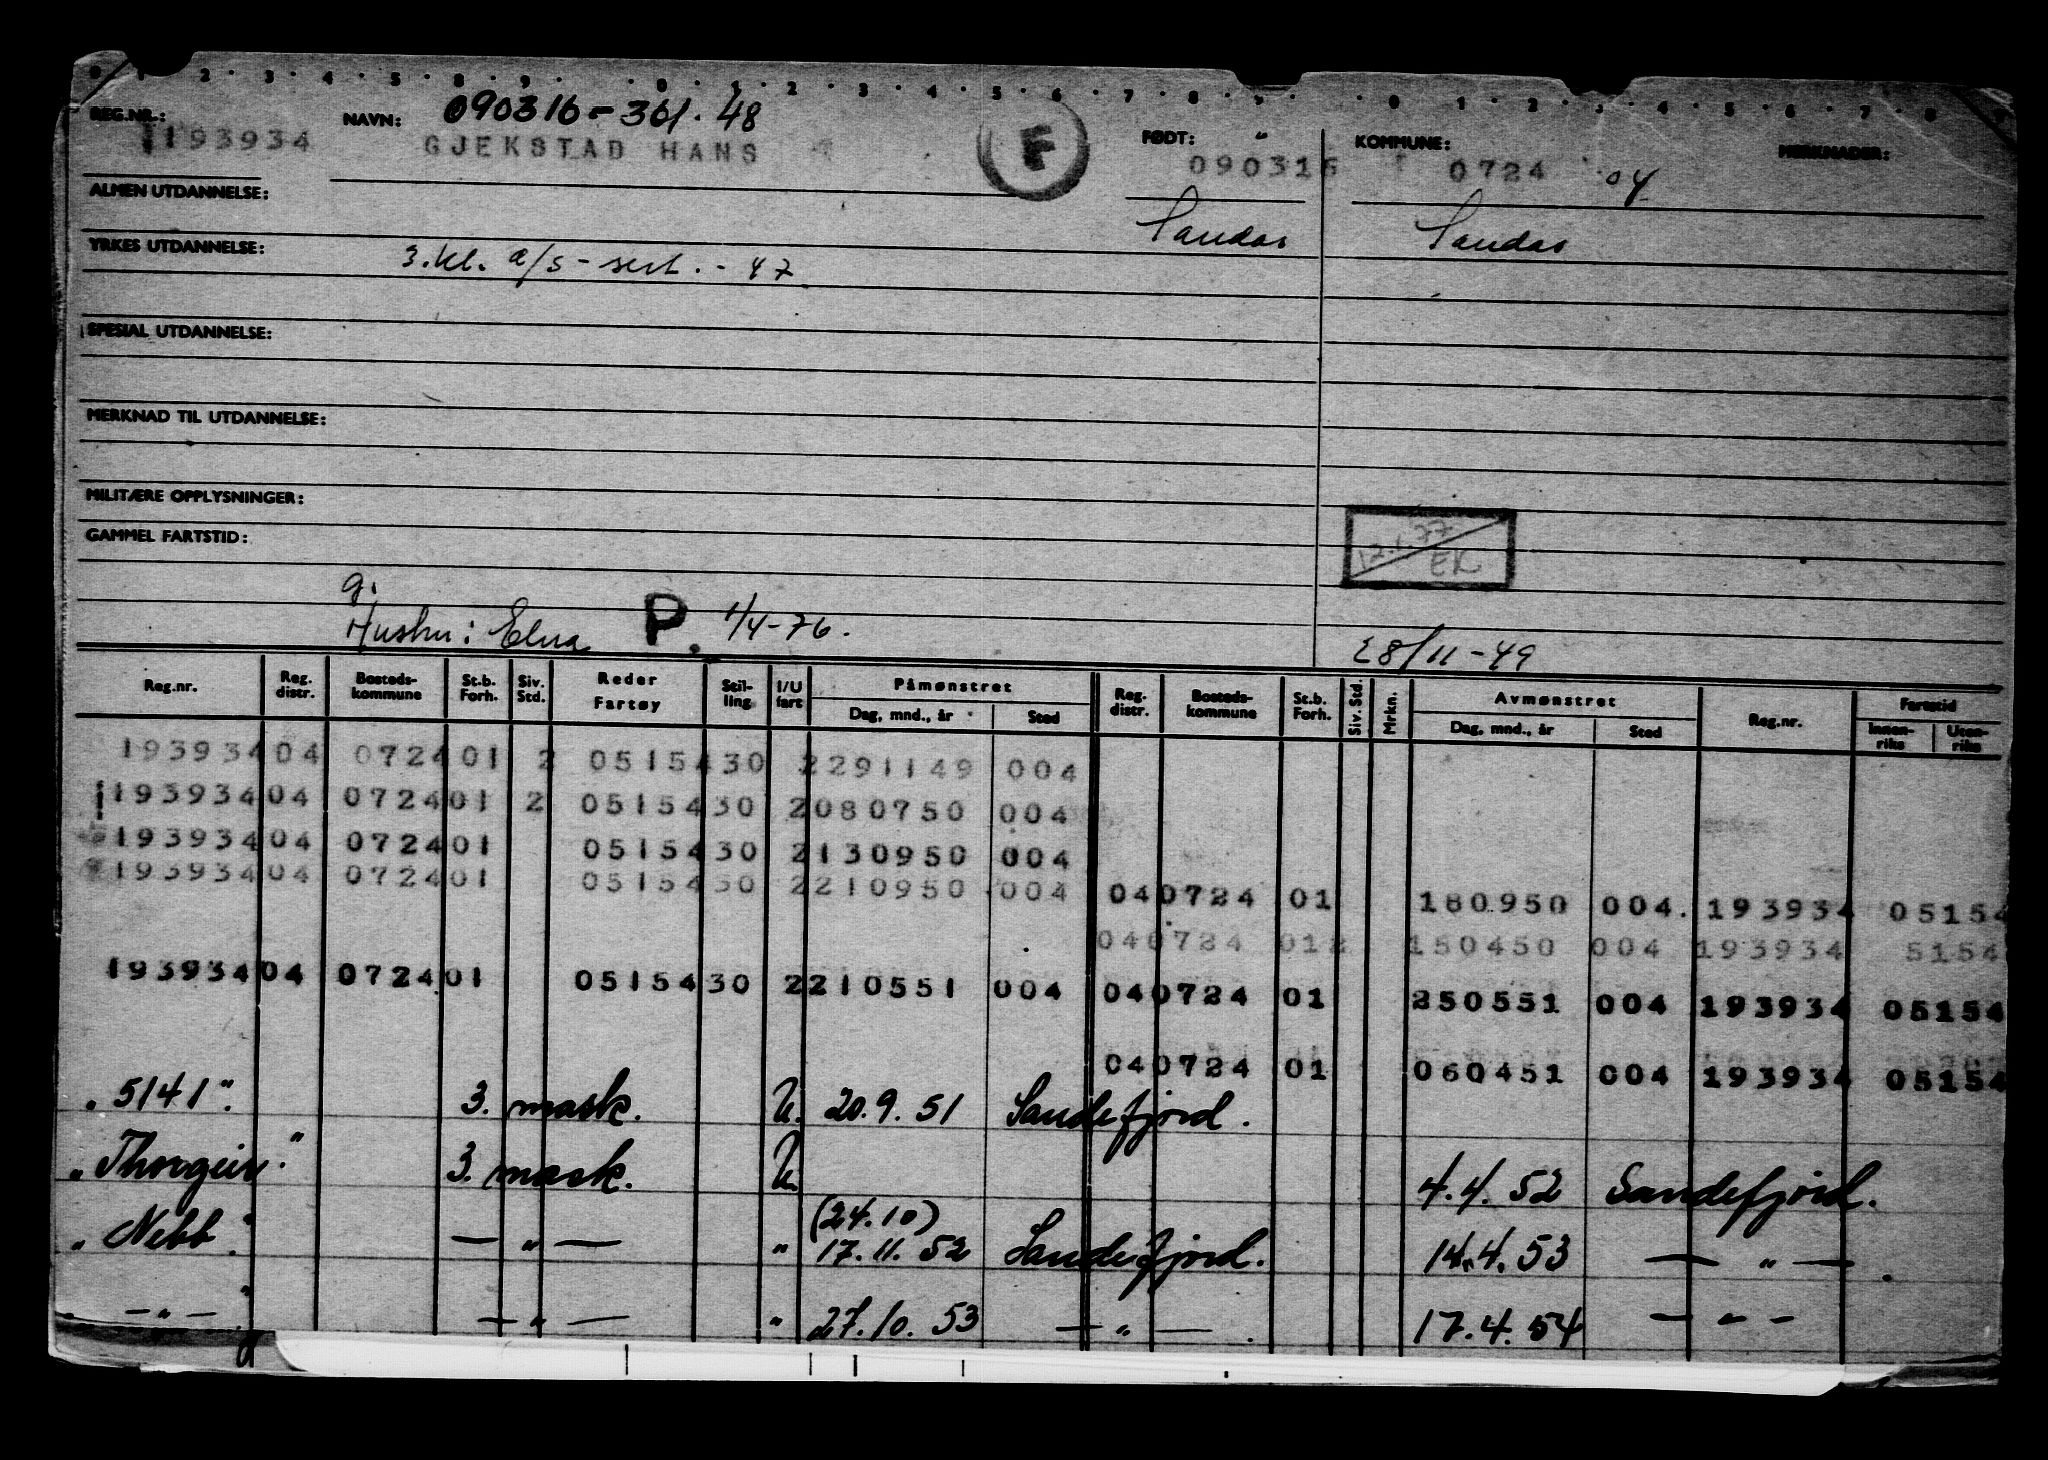 0 1 . 2 . 3 . 4 . 5 . 8 . 9 . . 0 . 1 . 2 . 3 . 4 . 5 . 6 . 7 . 8 . . 0 1 . 2 . 3 . 4 . 5 . 6 . 7 . 8
REG.NR.: NAVN: 090316-361.48 F FØDT: " KOMMUNE: MERKNADER:
193934 GJEKSTAD HANS 090316 0724 04
ALMEN UTDANNELSE: Sandar Sandar
YRKES UTDANNELSE: 3.kl. a/s-sert.-47
SPESIAL UTDANNELSE:
MERKNAD TIL UTDANNELSE:
MILITÆRE OPPLYSNINGER:
GAMMEL FARTSTID: 12.1.77 EK
g.
Hustru: Elna P. 1/4-76. 28/11-49
Reg.nr. Reg. distr. Bosteds-kommune St.b. Forh. Siv. Std. Reder Fartøy Stil-ling I/U fart Påmønstret Dag, mnd., år Sted Reg. distr. Bosteds-kommune St.b. Forh. Siv. Std. Mrkn. Avmønstret Dag, mnd., år Sted Reg.nr. Fartstid Innen-riks Uten-riks
193934 04 0724 01 2 05154 30 2 291149 004
193934 04 0724 01 2 05154 30 2 080750 004
193934 04 0724 01 05154 30 2 130950 004
193934 04 0724 01 05154 30 2 210950 004 04 0724 01 180950 004. 193934 05154
04 0724 01 2 150450 004 193934 5154
193934 04 0724 01 05154 30 2 210551 004 04 0724 01 250551 004 193934 05154
04 0724 01 060451 004 193934 05154
"5141". 3. mask. U. 20.9.51 Sandefjord.
"Thorgeir". 3. mask. U. 4.4.52 Sandefjord.
(24.10)
"Nebb". — " — " 17.11.52 Sandefjord. 14.4.53 — " — .
— " — . — " — " 27.10.53 — " — . 17.4.54 — " —